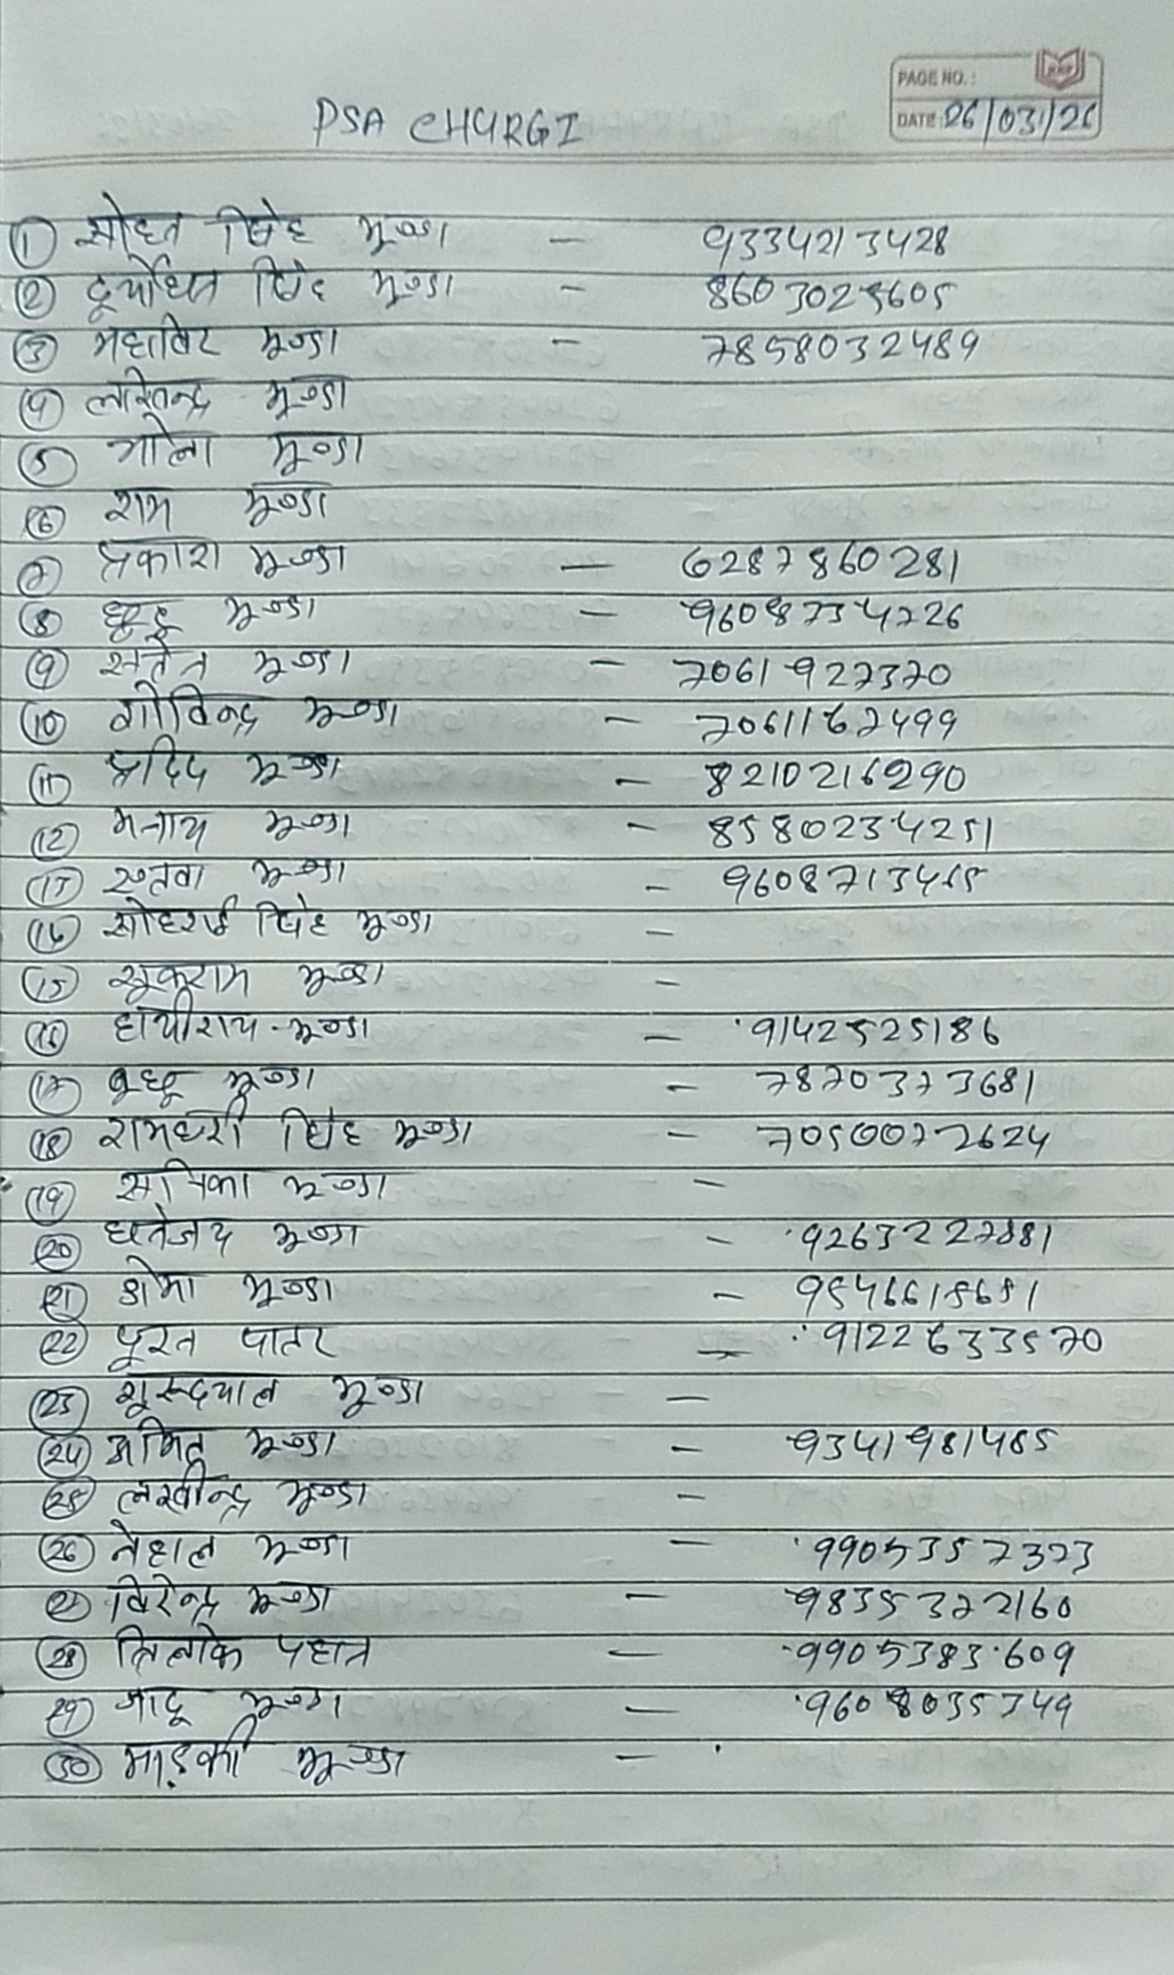 PAGE NO.:
DATE: 26/03/26
PSA CHURGI
① सोहन सिंह मुण्डा - 9334213428
② दुर्योधन सिंह मुण्डा - 8603025605
③ महाविर मुण्डा - 7858032489
④ मुण्डा
⑤ भोला मुण्डा
⑥ राम मुण्डा
⑦ प्रकाश मुण्डा - 6287860281
⑧ मुण्डा - 9608734726
⑨ मुण्डा - 7061927370
⑩ गोविन्द्र मुण्डा - 7061167499
⑪ प्रदिप मुण्डा - 8210216290
⑫ मुण्डा - 8580234251
⑬ मुण्डा -
⑭ सोहराई सिंह मुण्डा -
⑮ सुकराम मुण्डा -
⑯ हाथीराय - मुण्डा - 9142525186
⑰ बुधू मुण्डा - 7870373681
⑱ रामधरी सिंह मुण्डा - 7050072624
⑲ मुण्डा -
⑳ धनंजय मुण्डा -
㉑ डोमा मुण्डा -
㉒ पूरन पातर - 9122633570
㉓ गुरूदयाल मुण्डा -
㉔ अमित मुण्डा - 9341981485
㉕ लखीन्द्र मुण्डा -
㉖ नेहाल मुण्डा - 9905357323
㉗ विरेन्द्र मुण्डा - 9835372160
㉘ तिलोक पहान - 9905383609
㉙ जादू मुण्डा - 9608035749
㉚ माड़की मुण्डा -